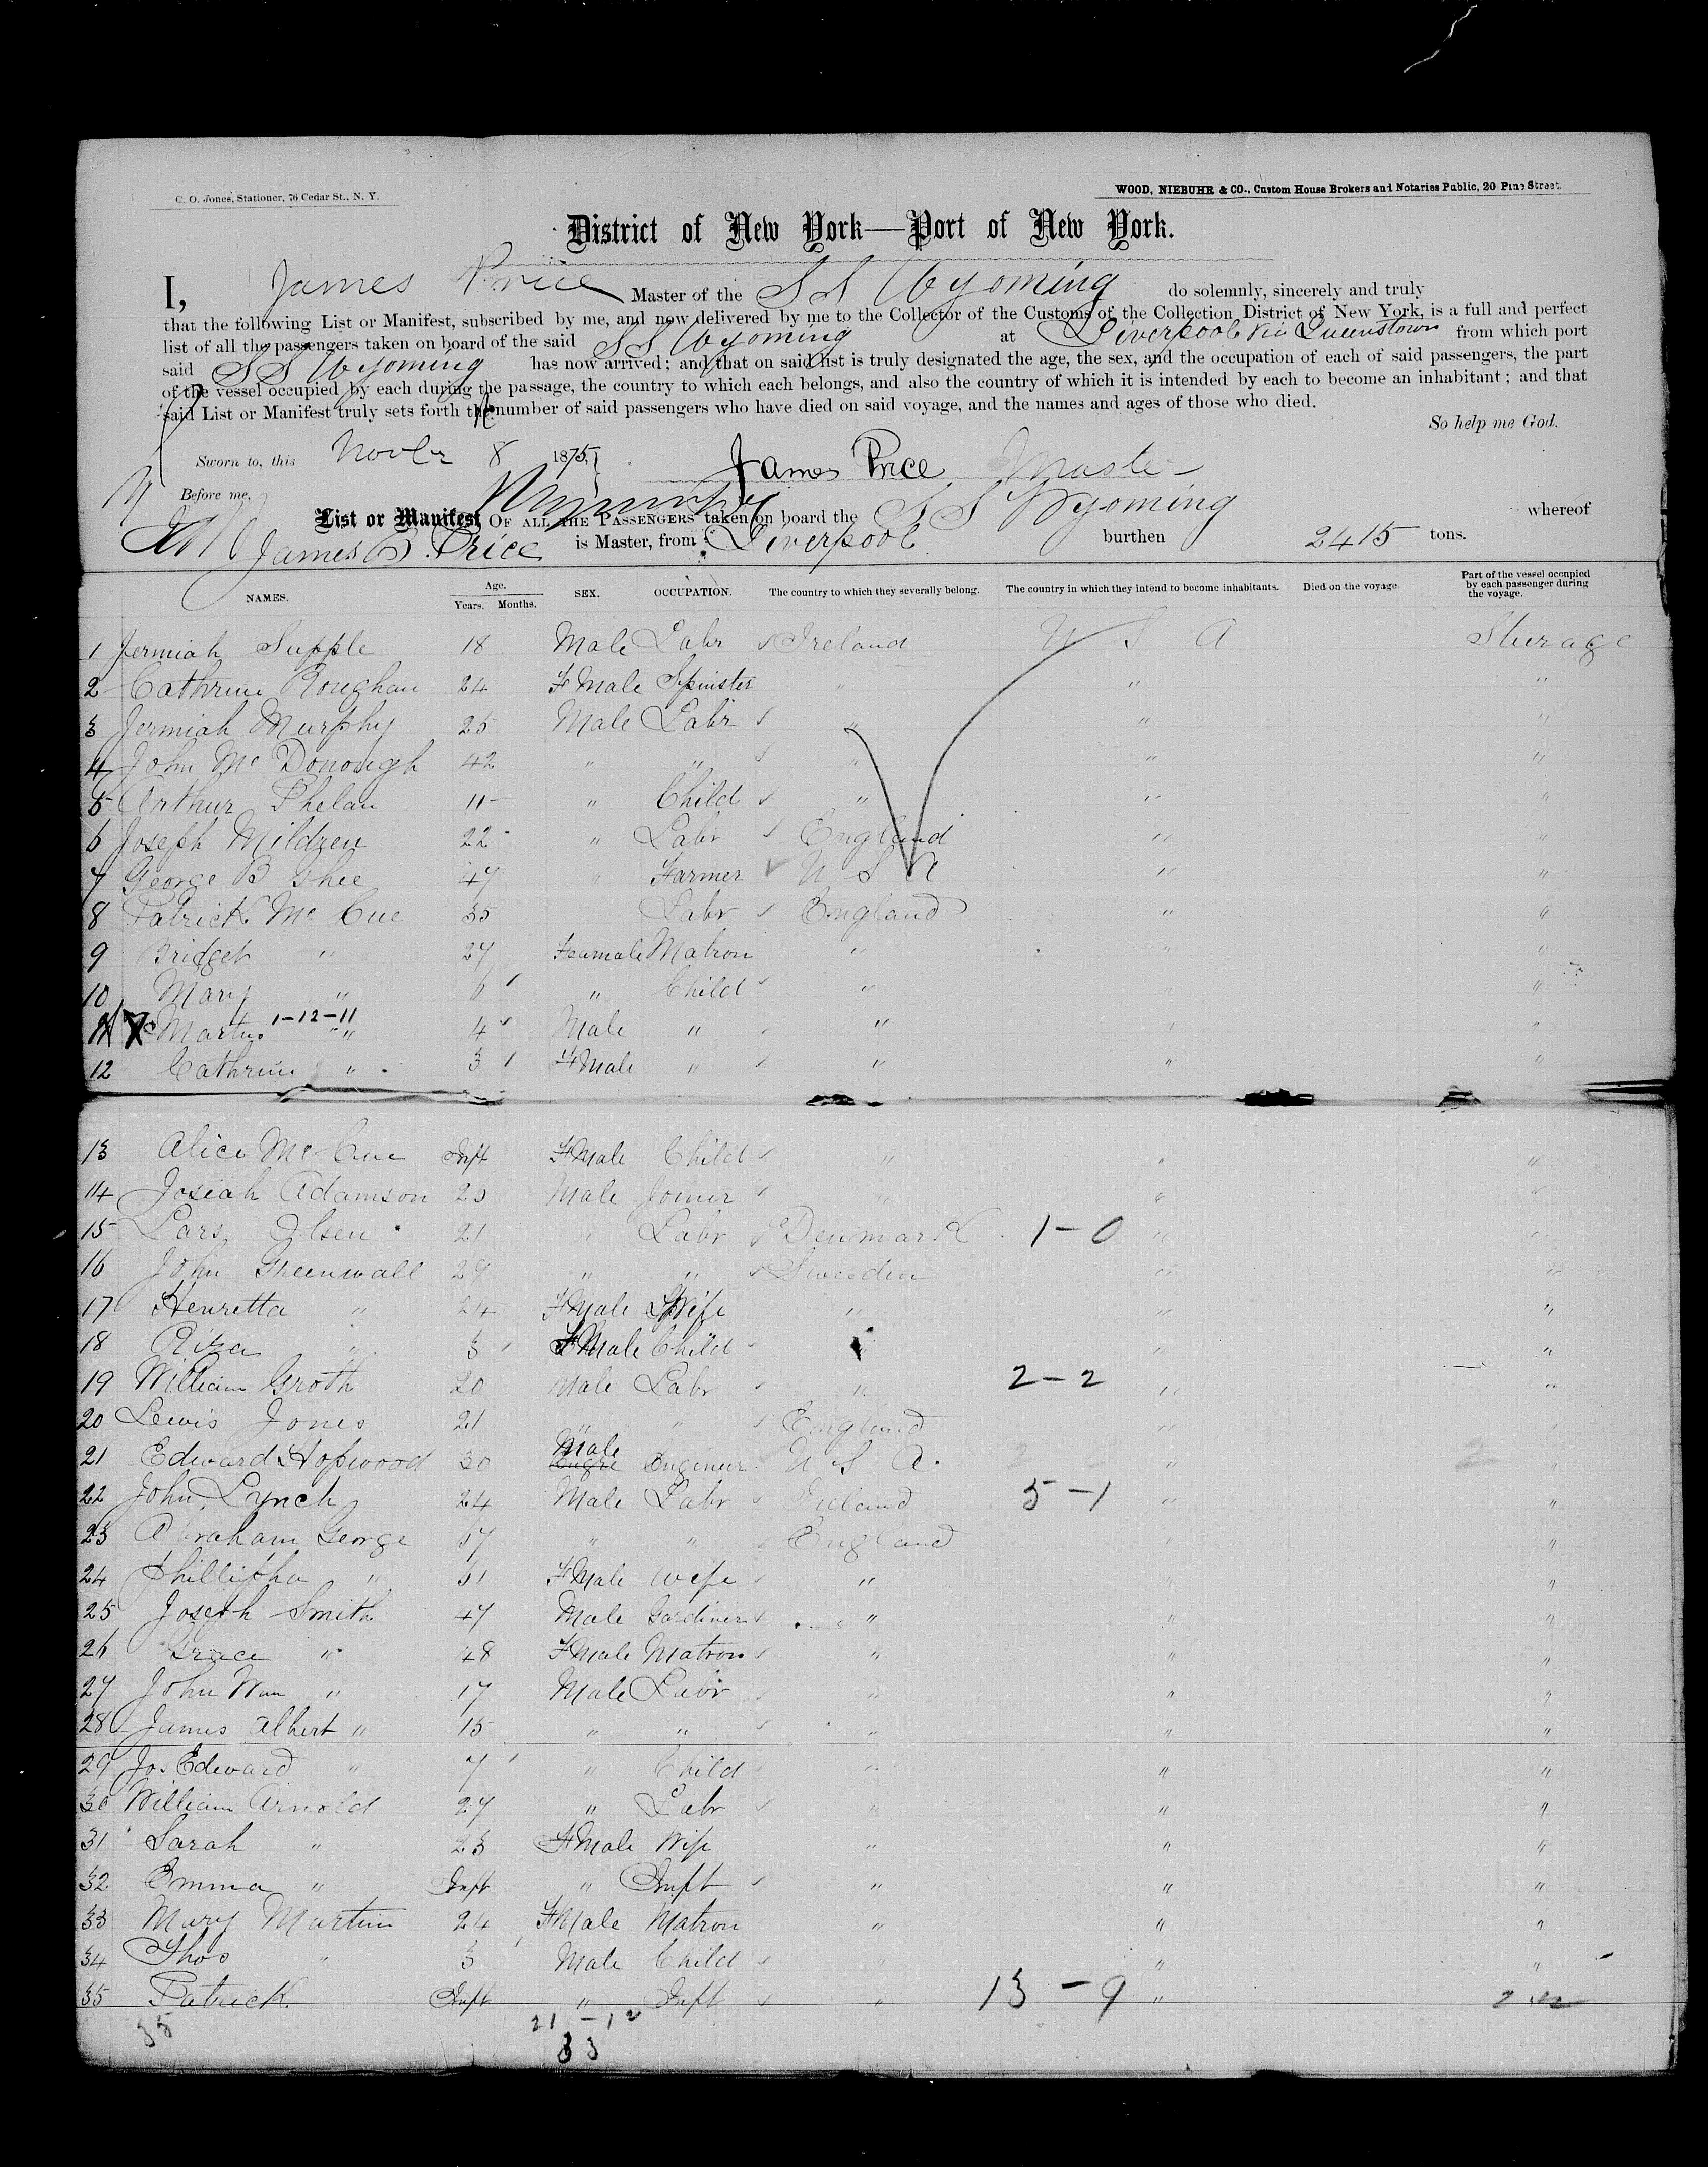 C. O. Jones, Stationer, 76 Cedar St., N. Y.
WOOD, NIEBUHR & CO., Custom House Brokers and Notaries Public, 20 Pine Street.
District of New York—Port of New York.
I, James Price Master of the S S Wyoming do solemnly, sincerely and truly
that the following List or Manifest, subscribed by me, and now delivered by me to the Collector of the Customs of the Collection District of New York, is a full and perfect
list of all the passengers taken on board of the said S S Wyoming at Liverpool via Queenstown from which port
said S S Wyoming has now arrived; and that on said list is truly designated the age, the sex, and the occupation of each of said passengers, the part
of the vessel occupied by each during the passage, the country to which each belongs, and also the country of which it is intended by each to become an inhabitant; and that
said List or Manifest truly sets forth the number of said passengers who have died on said voyage, and the names and ages of those who died.
So help me God.
Sworn to, this Novbr 8 1875, James Price Master
Before me,
List or Manifest OF ALL THE PASSENGERS taken on board the S S Wyoming whereof
James Price is Master, from Liverpool burthen 2415 tons.
NAMES. Age. Years. Months. SEX. OCCUPATION. The country to which they severally belong. The country in which they intend to become inhabitants. Died on the voyage Part of the vessel occupied by each passenger during the voyage.
1 Jermiah Supple 18 Male Labr Ireland U S A Sturage
2 Cathrine Roughan 24 F Male Spinster " " "
3 Jermiah Murphy 25 Male Labr " " "
4 John Mc Donough 42 " " " " "
5 Arthur Phelan 11 " Child " " "
6 Joseph Mildren 22 " Labr England " "
7 George B Ghee 47 " Farmer U S A " "
8 Patrick Mc Cue 35 Labr England " "
9 Bridget " 27 Feamale Matron " " "
10 Mary " 6 " Child " " "
11 Martin 1-12-11 " 4 Male " " " "
12 Cathrine " 3 F Male " " " "
13 Alice Mc Cue Inft F Male Child " " "
14 Josiah Adamson 26 Male Joiner " " "
15 Lars Olsen 21 " Labr Denmark 1-0 " "
16 John Greenwall 29 " " Sweeden " "
17 Henretta " 24 F Male Wife " " "
18 " 3 F Male Child " "
19 William Groth 20 Male Labr " 2-2 " "
20 Lewis Jones 21 " " England " "
21 Edward Hopwood 30 Male Engineer U S A. " "
22 John Lynch 24 Male Labr Ireland 5-1 " "
23 Abraham George 57 " " England " "
24 Phillipha " 51 F Male Wife " " "
25 Joseph Smith 47 Male Gardiner " " "
26 Grace " 48 F Male Matron " " "
27 John Wm " 17 Male Labr " " "
28 James Albert " 15 " " " " "
29 Jos Edward " 7 " Child " " "
30 William Arnold 27 " Labr " " "
31 Sarah " 23 F Male Wife " " "
32 Emma " Inft " Inft " " "
33 Mary Martin 24 F Male Matron " " "
34 Thos " 3 Male Child " "
35 Patrick Inft " Inft " 13-9 "
35 21-12
33